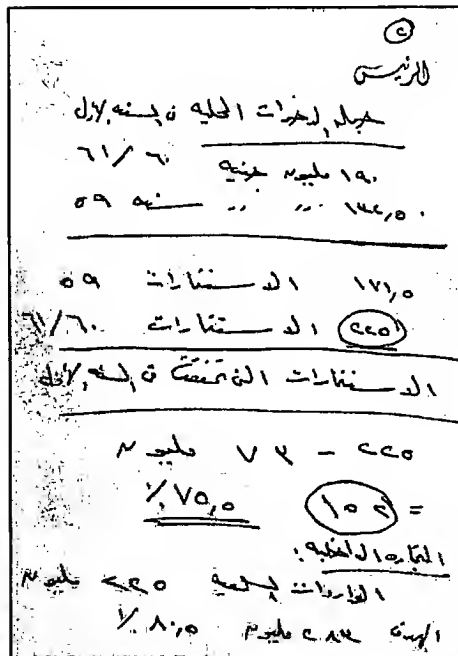 ٢
الرئيس
جملة المدخرات المحلية في السنة الأولى
٦٠ / ٦١
١٩٠ مليون جنيه
١٣٤,٥٠ سنة ٥٩
١٧١,٥ الاستثمارات ٥٩
٢٢٥ الاستثمارات ٦٠ / ٦١
الاستثمارات التي تحققت في السنة الأولى
٢٢٥ – ٧٣ مليون
= ١٥٢ ٧٥,٥ ٪
التجارة الداخلية :
الواردات السلعية ٢٢٥ مليون
الهدف ٢٨٣ مليون ٨٠,٥ ٪